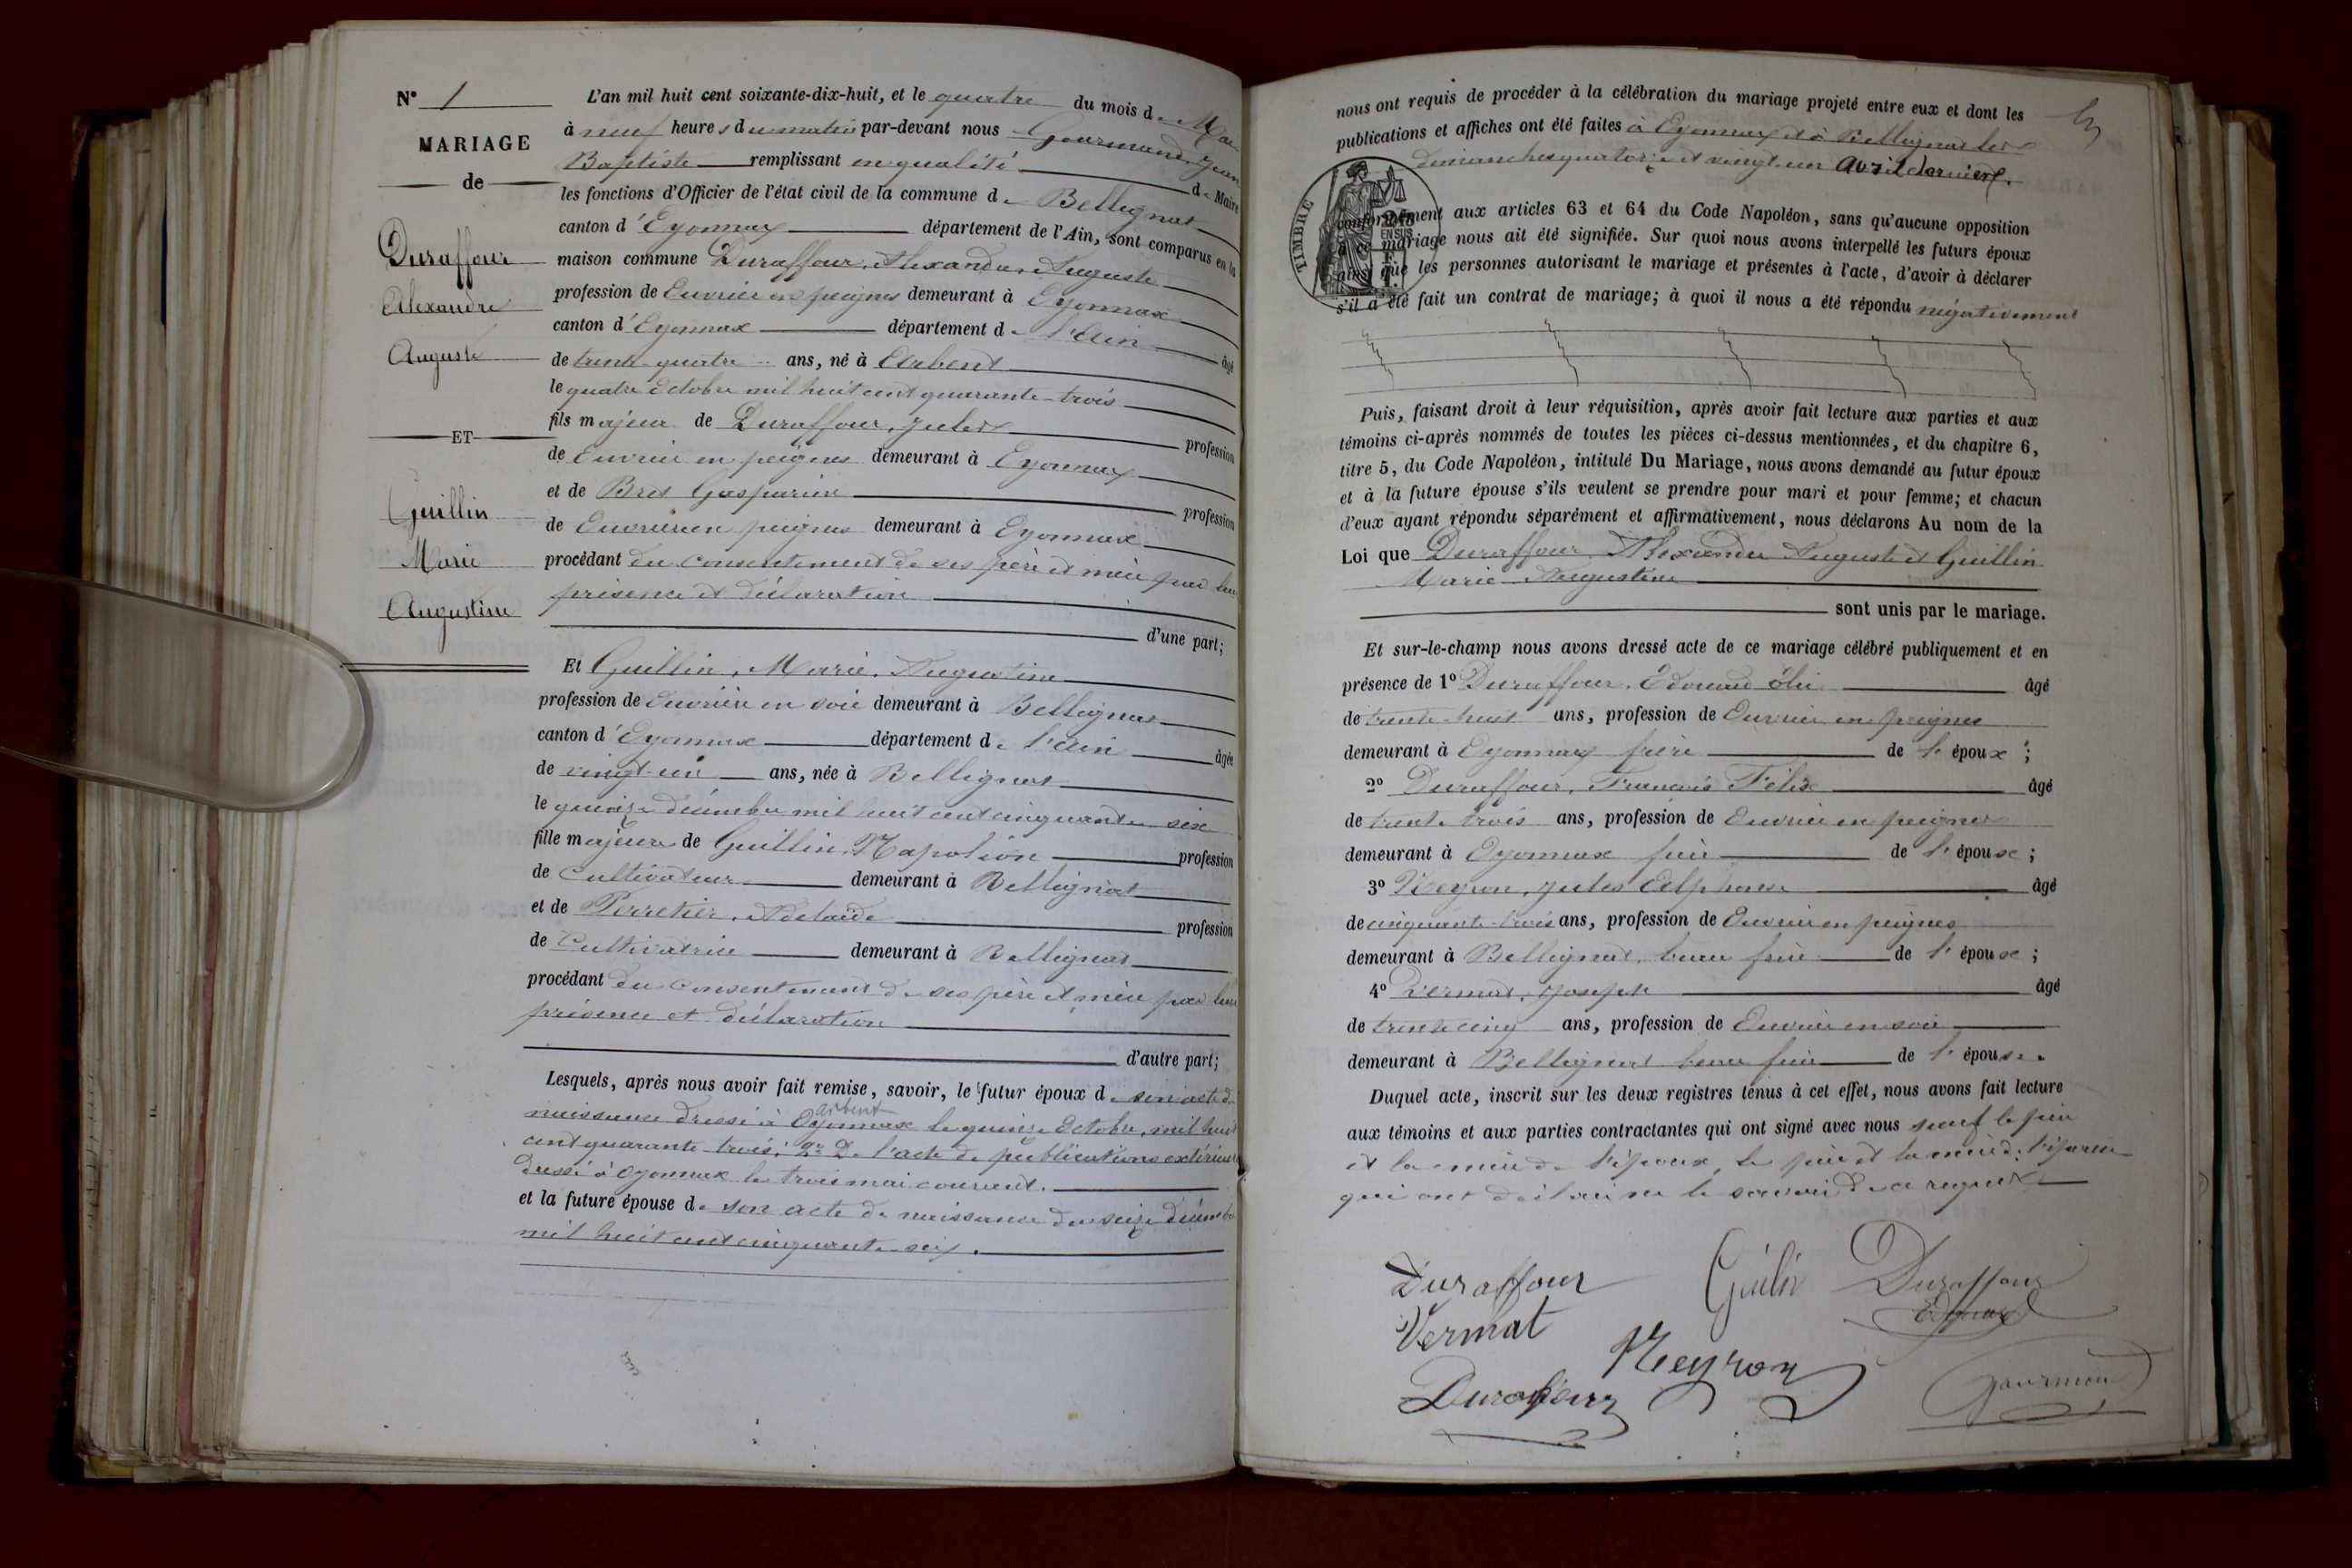 N° 1
MARIAGE
de
Duraffour
Alexandre
Auguste
ET
Guillin
Marie
Augustine
L'an mil huit cent soixante-dix-huit, et le quatre du mois de Mai
à neuf heures du matin par-devant nous Gourmand, Jean
Baptiste remplissant en qualité de Maire
les fonctions d'Officier de l'état civil de la commune de Bellignat
canton d'Oyonnax département de l'Ain, sont comparus en la
maison commune Duraffour, Alexandre, Auguste
profession de Ouvrier en peignes demeurant à Oyonnax
canton d'Oyonnax département de l'Ain âgé
de trente-quatre ans, né à Arbent
le quatre Octobre mil huit cent quarante-trois
fils majeur de Duraffour, Jules profession
de Ouvrier en peignes demeurant à Oyonnax
et de Bret Gasparine profession
de Ouvrière en peignes demeurant à Oyonnax
procédant du consentement de ses père et mère par leur
présence et déclaration
d'une part;
Et Guillin, Marie, Augustine
profession de Ouvrière en soie demeurant à Bellignat
canton d'Oyonnax département de l'Ain âgée
de vingt-un ans, née à Bellignat
le quinze décembre mil huit cent cinquante-six
fille majeure de Guillin, Napoléon profession
de Cultivateur demeurant à Bellignat
et de Perretier, Adelaïde profession
de Cultivatrice demeurant à Bellignat
procédant du consentement de ses père et mère par leur
présence et déclaration
d'autre part;
Lesquels, après nous avoir fait remise, savoir, le futur époux de son acte de
naissance dressé à Oyonnax Arbent le quinze Octobre, mil huit
cent quarante-trois; 2° De l'acte de publications extérieures
dressé à Oyonnax le trois mai courant.
et la future épouse de son acte de naissance du seize décembre
mil huit cent cinquante-six.
nous ont requis de procéder à la célébration du mariage projeté entre eux et dont les
publications et affiches ont été faites à Oyonnax et à Bellignat les
dimanches quatorze et vingt-un avril dernier.
TIMBRE
EN SUS
conformément aux articles 63 et 64 du Code Napoléon, sans qu'aucune opposition
à ce mariage nous ait été signifiée. Sur quoi nous avons interpellé les futurs époux
ainsi que les personnes autorisant le mariage et présentes à l'acte, d'avoir à déclarer
s'il a été fait un contrat de mariage; à quoi il nous a été répondu négativement
Puis, faisant droit à leur réquisition, après avoir fait lecture aux parties et aux
témoins ci-après nommés de toutes les pièces ci-dessus mentionnées, et du chapitre 6,
titre 5, du Code Napoléon, intitulé Du Mariage, nous avons demandé au futur époux
et à la future épouse s'ils veulent se prendre pour mari et pour femme; et chacun
d'eux ayant répondu séparément et affirmativement, nous déclarons Au nom de la
Loi que Duraffour Alexandre Auguste et Guillin
Marie Augustine
sont unis par le mariage.
Et sur-le-champ nous avons dressé acte de ce mariage célébré publiquement et en
présence de 1° Duraffour, Edouard âgé
de trente-huit ans, profession de Ouvrier en peignes
demeurant à Oyonnax frère de l'époux;
2° Duraffour, François Félix âgé
de trente-trois ans, profession de Ouvrier en peignes
demeurant à Oyonnax frère de l'époux;
3° Neyron, Jules Alphonse âgé
de cinquante-trois ans, profession de Ouvrier en peignes
demeurant à Bellignat, beau frère de l'épouse;
4° Vermat, Joseph âgé
de trente cinq ans, profession de Ouvrier en soie
demeurant à Bellignat beau frère de l'épouse.
Duquel acte, inscrit sur les deux registres tenus à cet effet, nous avons fait lecture
aux témoins et aux parties contractantes qui ont signé avec nous sauf le père
et la mère de l'époux, le père et la mère de l'épouse
qui ont déclaré ne le savoir de ce requis
Duraffour Guilin Duraffour
Edouard
Vermat
Neyron
Duraffour Gourmand